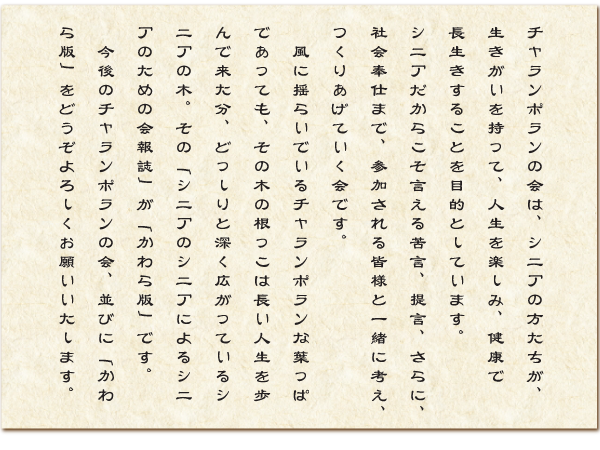 チャランポランの会は、シニアの方たちが、
生きがいを持って、人生を楽しみ、健康で
長生きすることを目的としています。
シニアだからこそ言える苦言、提言、さらに、
社会奉仕まで、参加される皆様と一緒に考え、
つくりあげていく会です。
風に揺らいでいるチャランポランな葉っぱ
であっても、その木の根っこは長い人生を歩
んで来た分、どっしりと深く広がっているシ
ニアの木。その「シニアのシニアによるシニ
アのための会報誌」が「かわら版」です。
今後のチャランポランの会、並びに「かわ
ら版」をどうぞよろしくお願いいたします。